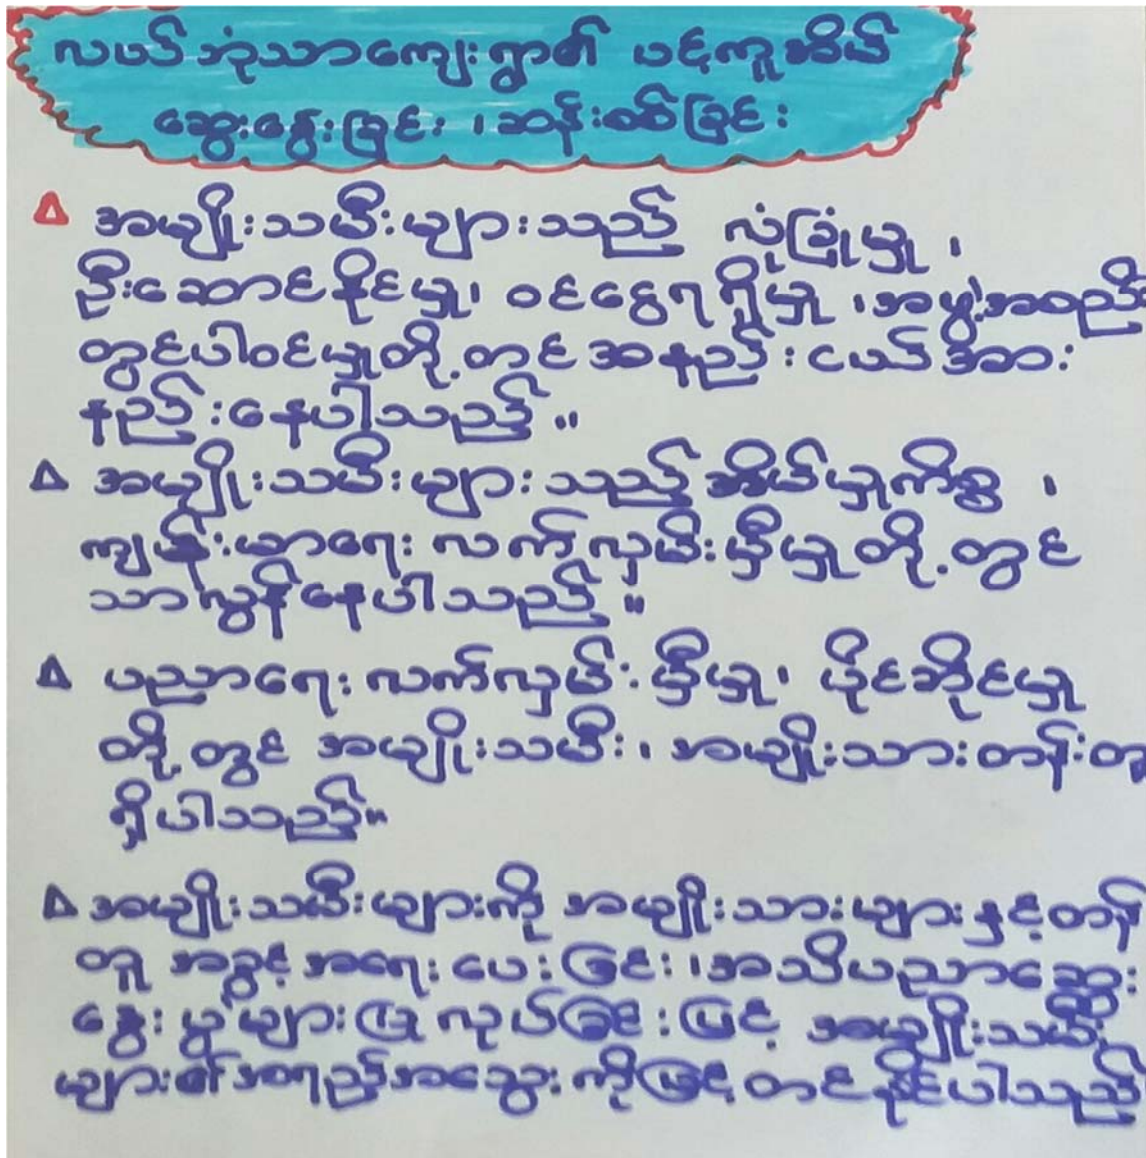 လယ်ဘုံသာကျေးရွာ၏ ပင့်ကူအိမ်
ဆွေးနွေးခြင်း ၊ ဆန်းစစ်ခြင်း
အမျိုးသမီးများသည် လုံခြုံမှု ၊
ဦးဆောင်နိုင်မှု၊ ဝင်ငွေရရှိမှု ၊ အဖွဲ့အစည်း
တွင်ပါဝင်မှုတို့တွင် အနည်းငယ် အား
နည်းနေပါသည်။
အမျိုးသမီးများသည် အိမ်မှုကိစ္စ ၊
ကျန်းမာရေး လက်လှမ်းမှီမှုတို့တွင်
သာလွန်နေပါသည်။
ပညာရေး လက်လှမ်းမှီမှု၊ ပိုင်ဆိုင်မှု
တို့တွင် အမျိုးသမီး၊ အမျိုးသားတန်းတူ
ရှိပါသည်။
အမျိုးသမီးများကို အမျိုးသားများနှင့်တန်း
တူ အခွင့်အရေးပေးခြင်း ၊ အသိပညာဆွေး
နွေးပွဲများပြုလုပ်ခြင်းဖြင့် အမျိုးသမီး
များ၏အရည်အသွေးကိုမြှင့်တင်နိုင်ပါသည်